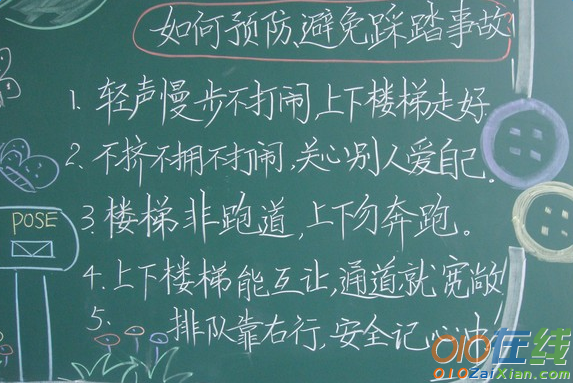 如何预防,避免踩踏事故
1. 轻声慢步不打闹,上下楼梯走好
2. 不挤不拥不打闹,关心别人爱自己。
3. 楼梯非跑道,上下勿奔跑。
POSE
4. 上下楼梯能互让,通道就宽敞!
5. 排队靠右行,安全记心中
010在线
010ZaiXian.com